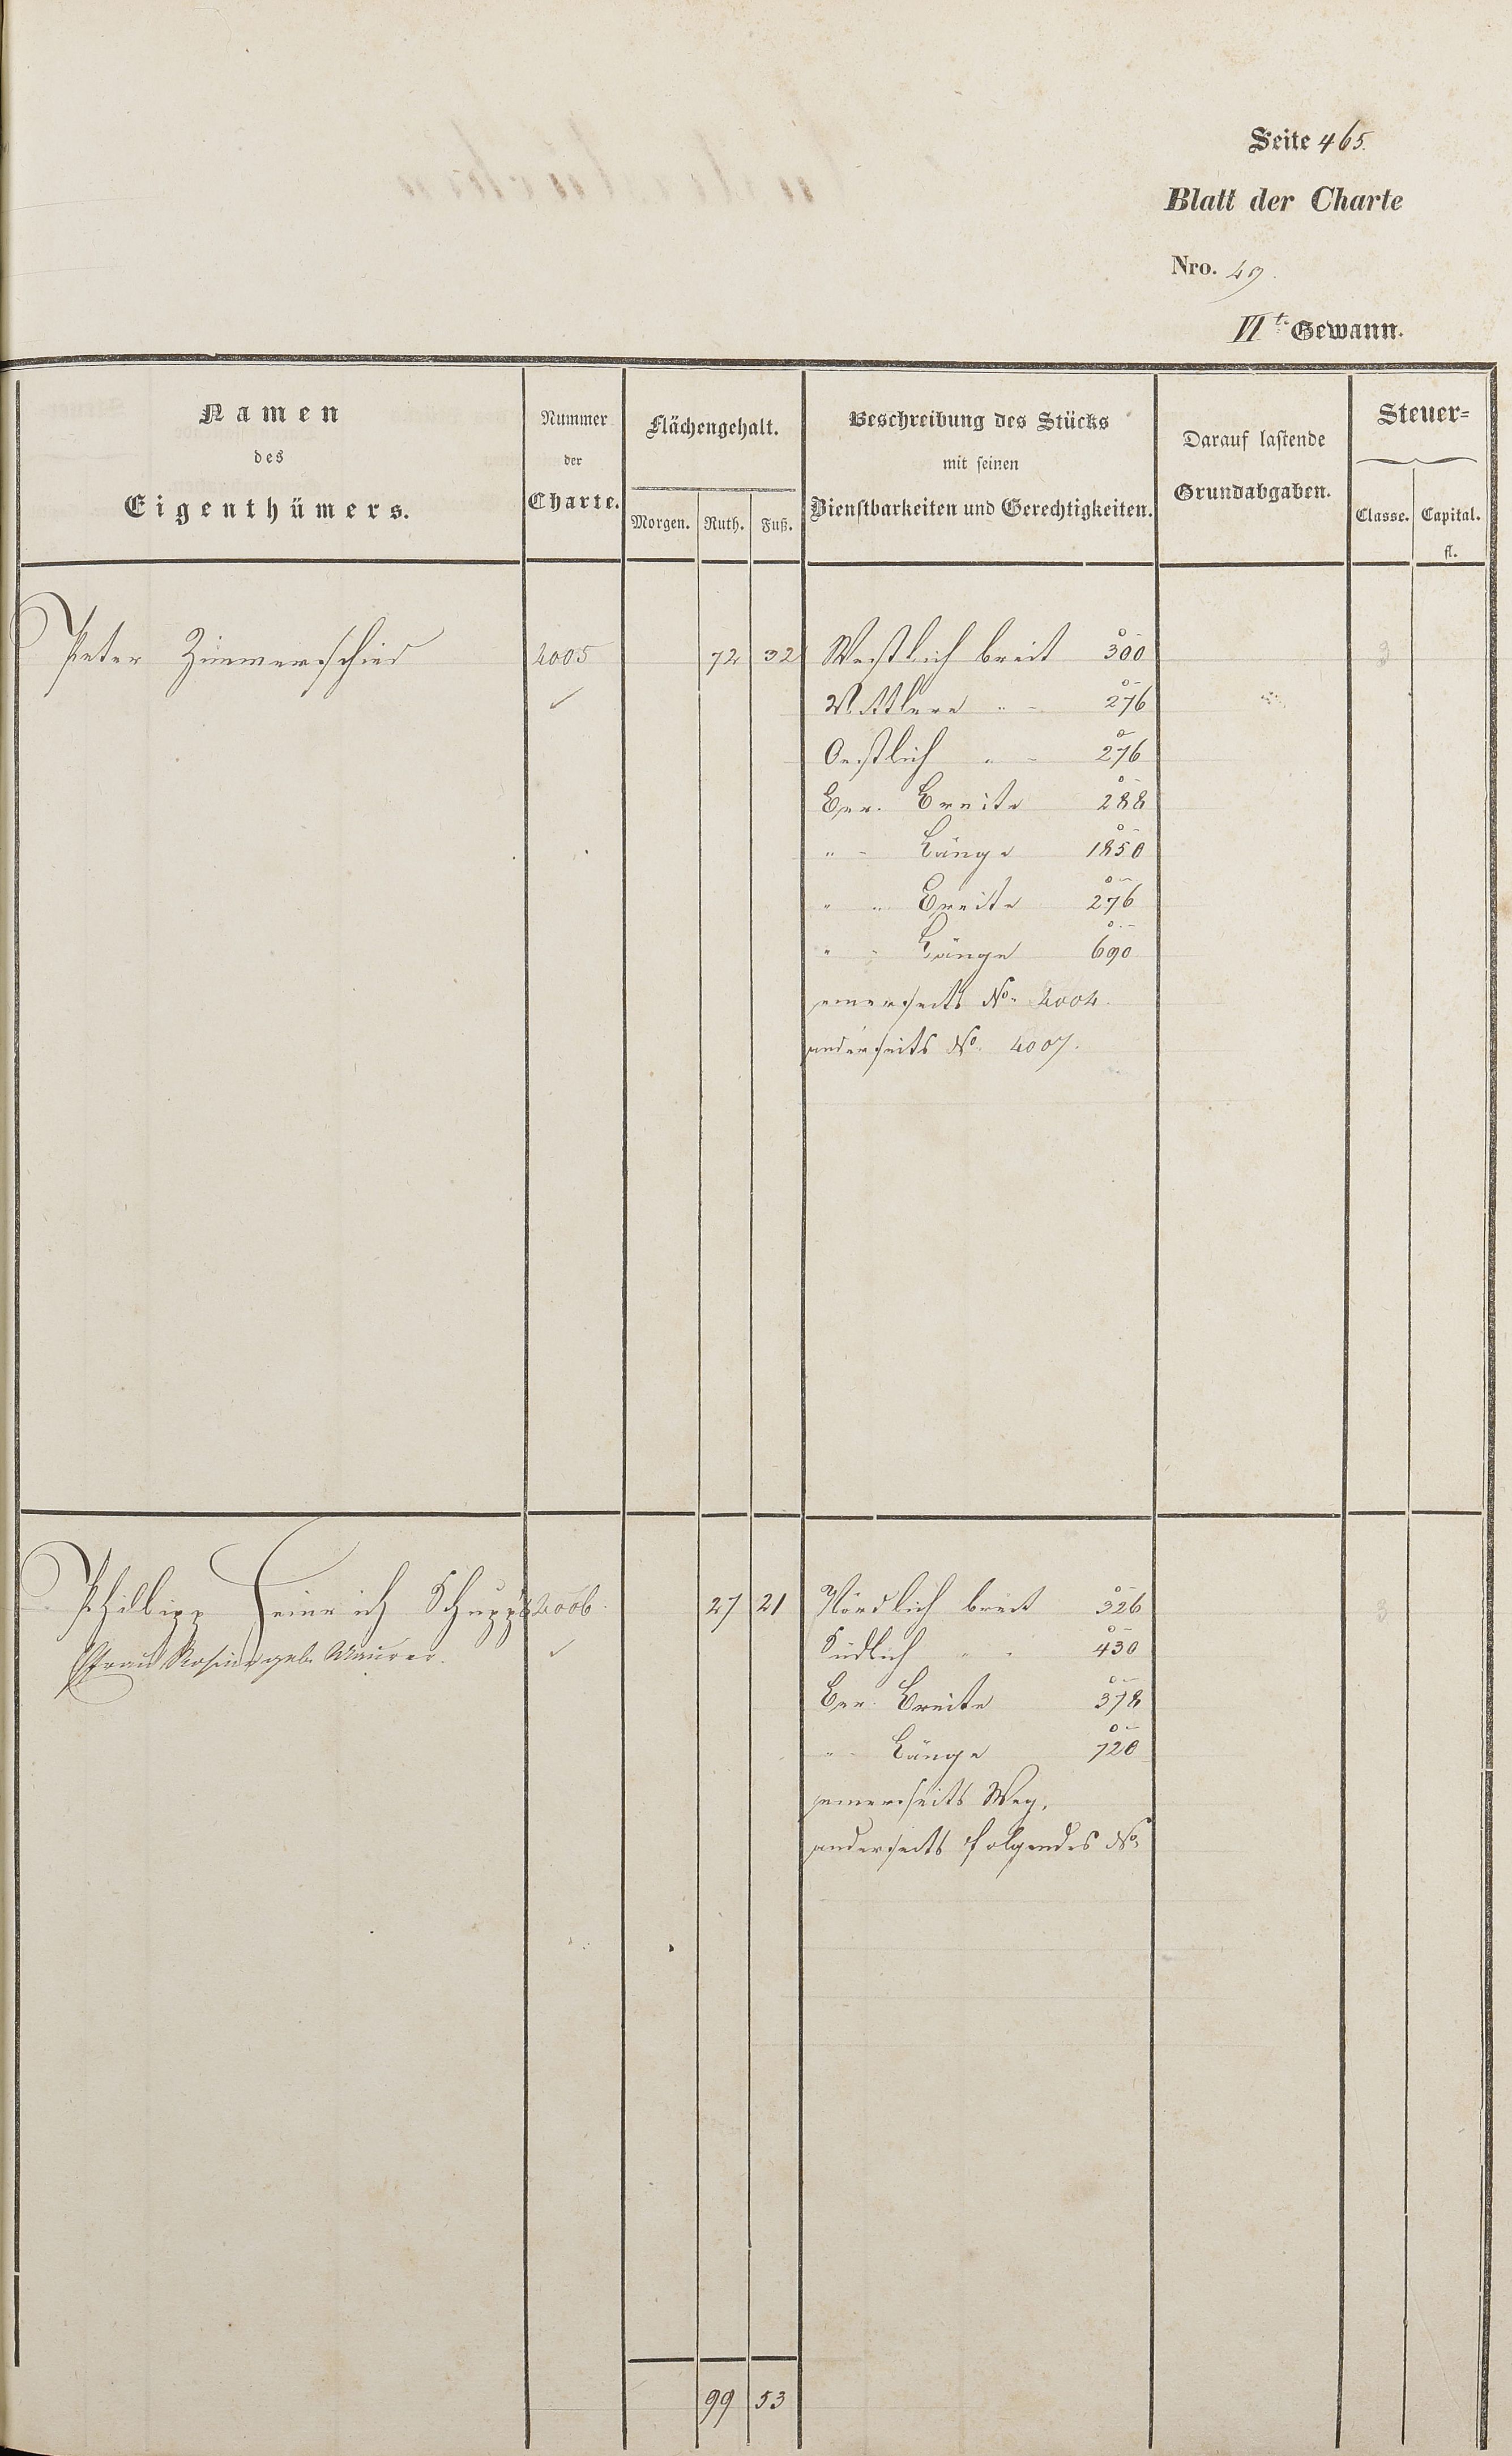 Seite 465.
Blatt der Charte
Nro. 49.
VI t. Gewann.
Namen
des
Eigenthümers.
Nummer
der
Charte.
Flächengehalt.
Morgen. Ruth. Fuß.
Beschreibung des Stücks
mit seinen
Dienstbarkeiten und Gerechtigkeiten.
Darauf lastende
Grundabgaben.
Steuer-
Classe. Capital.
fl.
Peter Zimmerschied 4005 72 32 Westlich breit 300 3
Mittlere " - 276
Oestlich " - 276
Ber. Breite 288
" - Länge 1850
" " Breite 276
" - Länge 690
einerseits No. 4004.
anderseits No. 4007.
Philipp Heinrich Schupp's 4006. 27 21 Nördlich breit 326 3
Frau Rosine geb. Maurer. Südlich " " 430
Ber. Breite 378
" - Länge 720
einerseits Weg,
anderseits folgendes No.
99 53